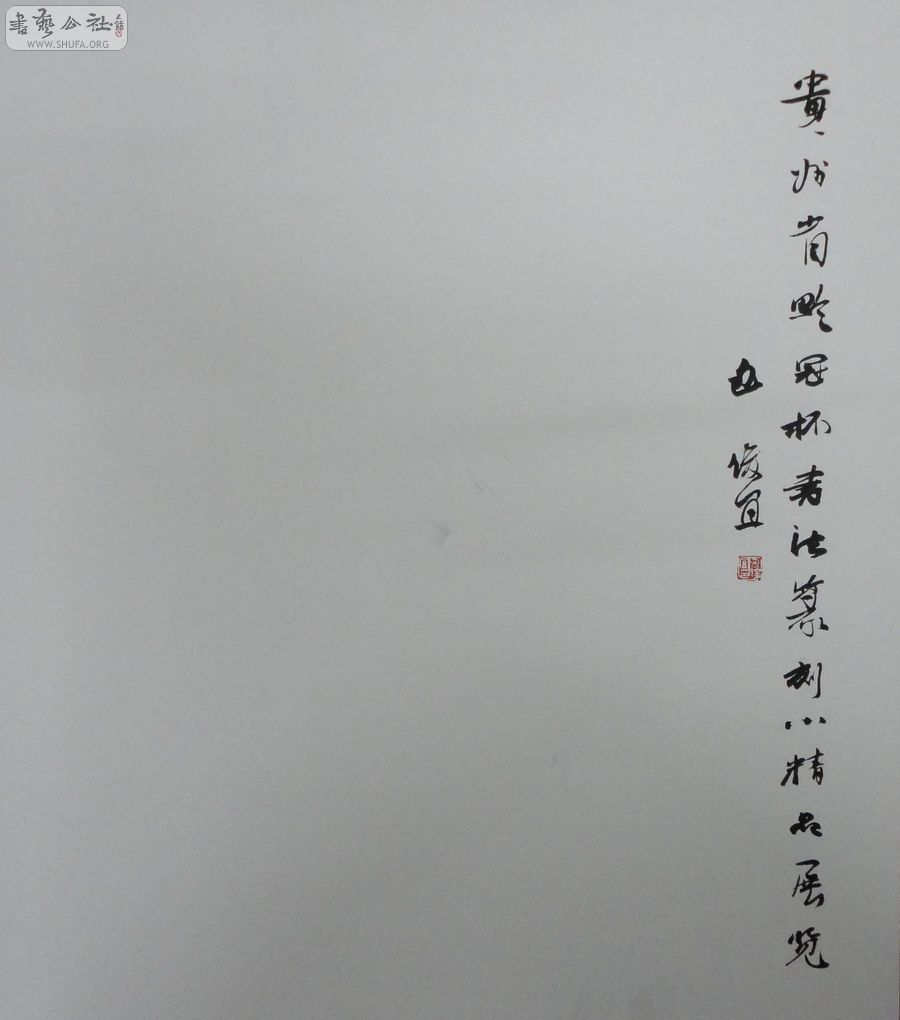 書藝公社
WWW.SHUFA.ORG
貴州省黔冠杯書法篆刻小精品展览
俊宜